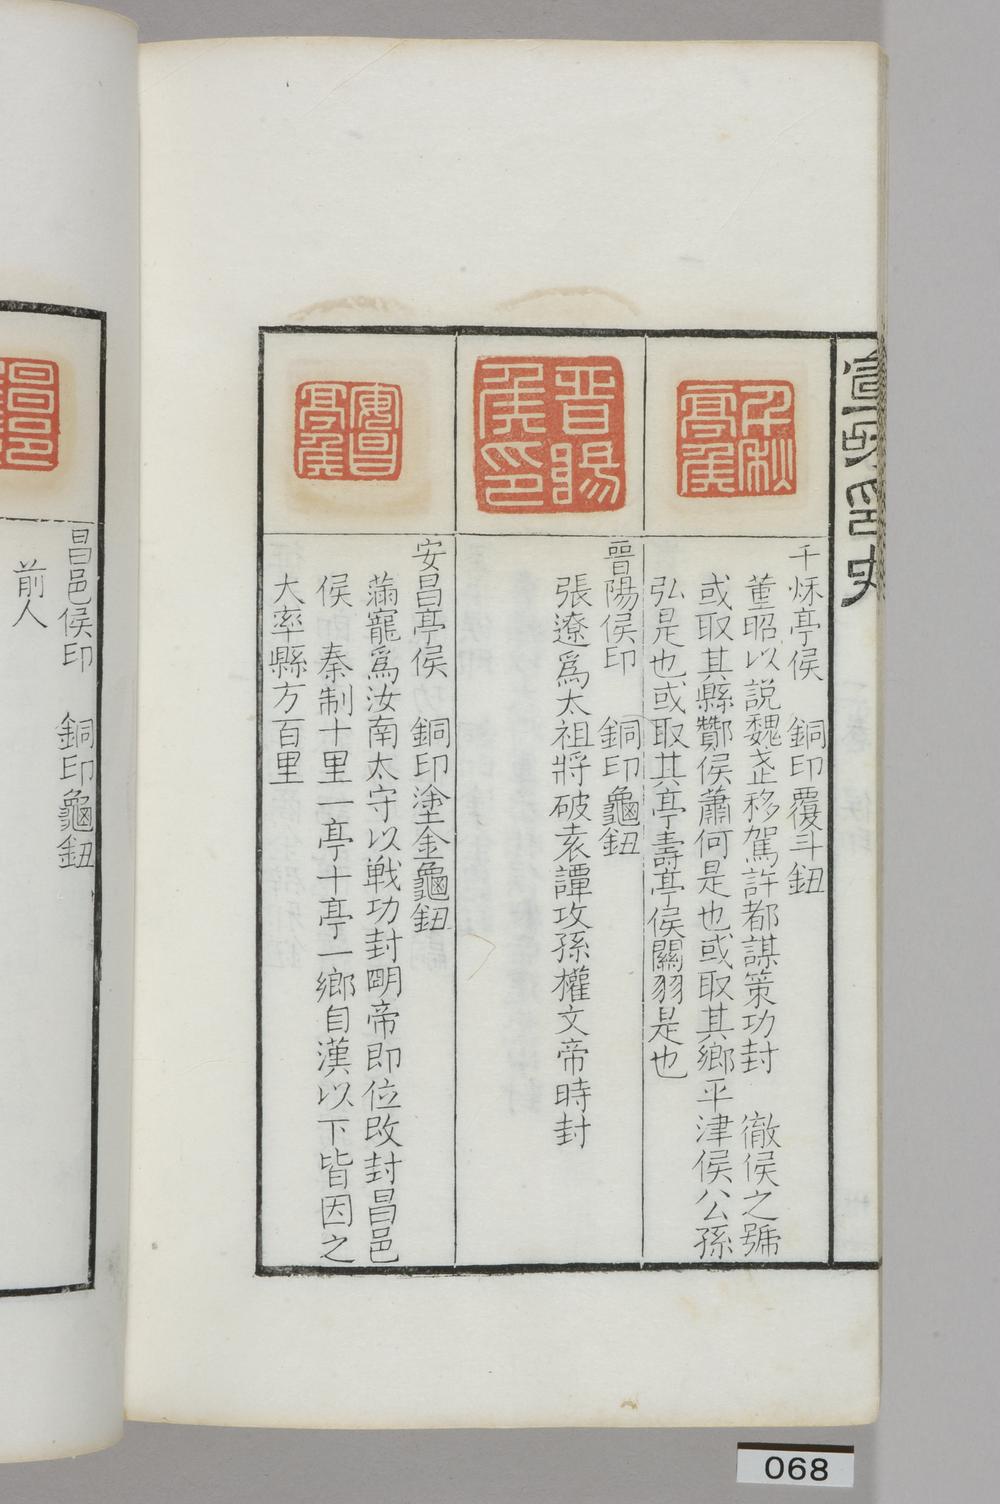 宣和印史
千秋亭侯
千秌亭侯　銅印覆斗鈕
董昭以説魏武移駕許都謀策功封　徹侯之號
或取其縣酇侯蕭何是也或取其鄉平津侯公孫
弘是也或取其亭壽亭侯關羽是也
晉陽侯印
晉陽侯印　銅印龜鈕
張遼爲太祖將破袁譚攻孫權文帝時封
安昌亭侯
安昌亭侯　銅印塗金龜鈕
滿寵爲汝南太守以戰功封明帝即位改封昌邑
侯　秦制十里一亭十亭一鄉自漢以下皆因之
大率縣方百里
昌邑
昌邑侯印　銅印龜鈕
前人
068